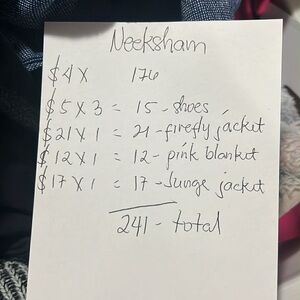 Neeksham
$4 X 176
$5 X 3 = 15 - shoes
$21 X 1 = 21 - firefly jacket
$12 X 1 = 12 - pink blanket
$17 X 1 = 17 - jacket
241 - total